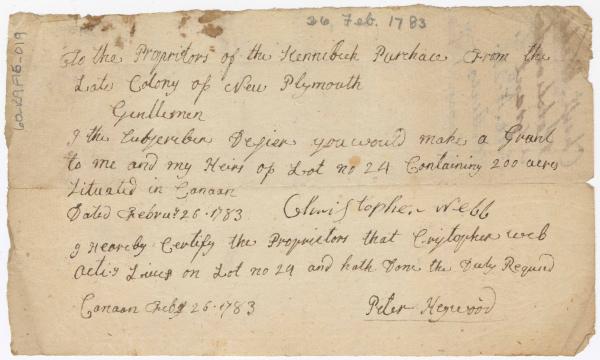 26 Feb. 1783
To the Propritors of the Kennibeck Purchace From the
Late Colony of New Plymouth
Gentlemen
I the Subscriber Desier you would make a Grant
to me and my Heirs of Lot no 24 Containing 200 acres
Situated in Canaan
Dated Febru 26 - 1783 Christopher Webb
I Heareby Certify the Proprietors that Cristopher web
Lives on Lot no 24 and hath Done the Duty Requird
Canaan Feby 26 - 1783 Peter Heywood